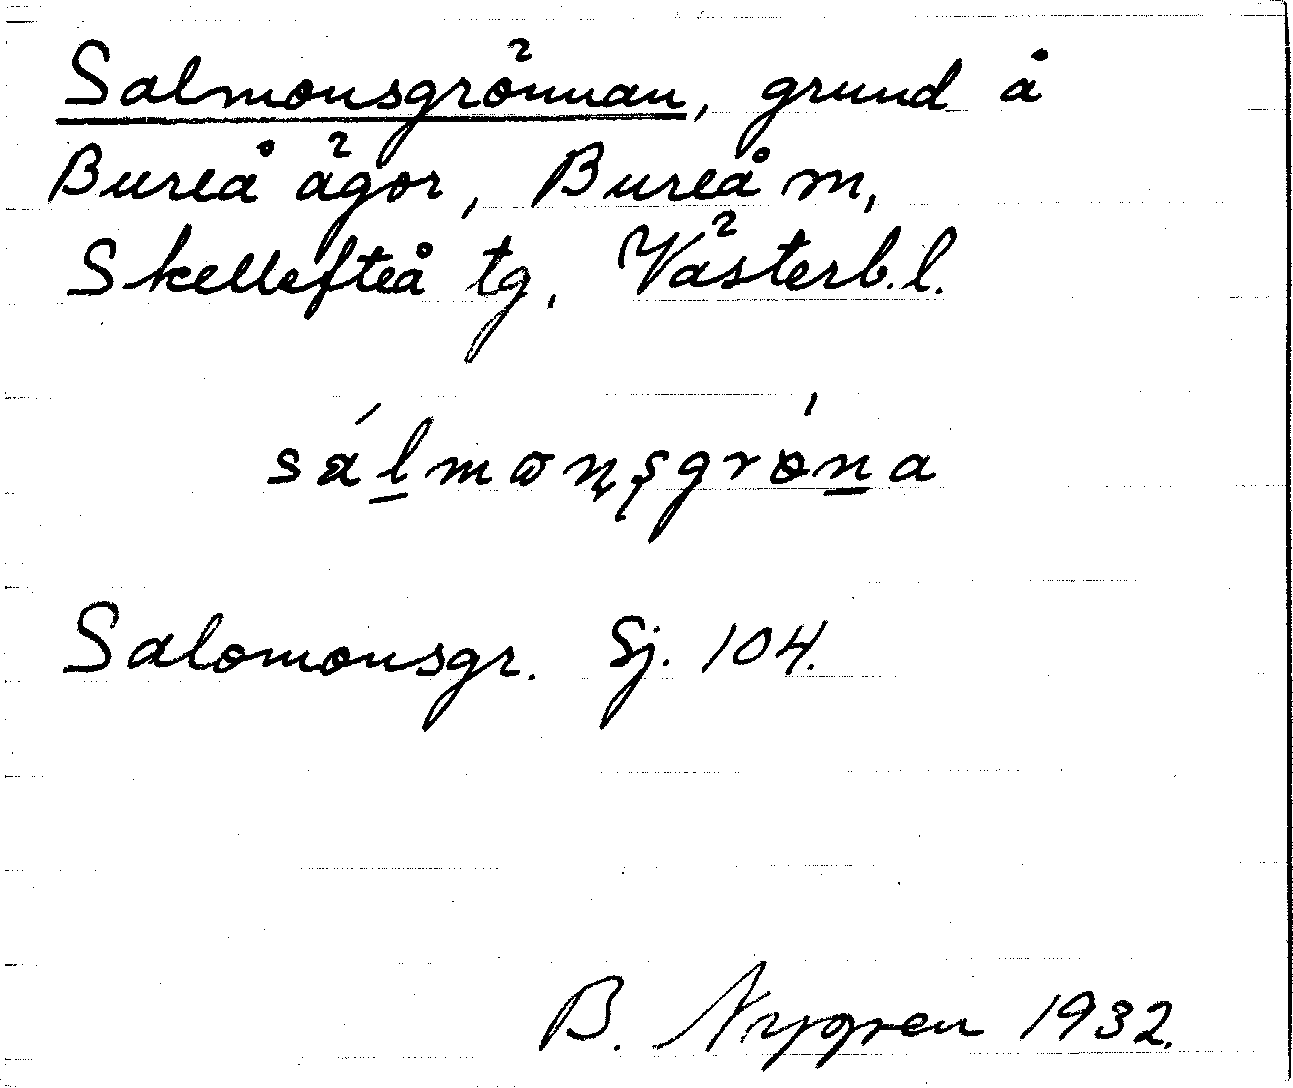 Salmonsgrönnan, grund å
Bureå ägor, Bureå m,
Skellefteå tg, Västerb.l.
sálmωn̥ṣgrò́na
Salomonsgr. Sj. 104.
B. Nygren 1932.